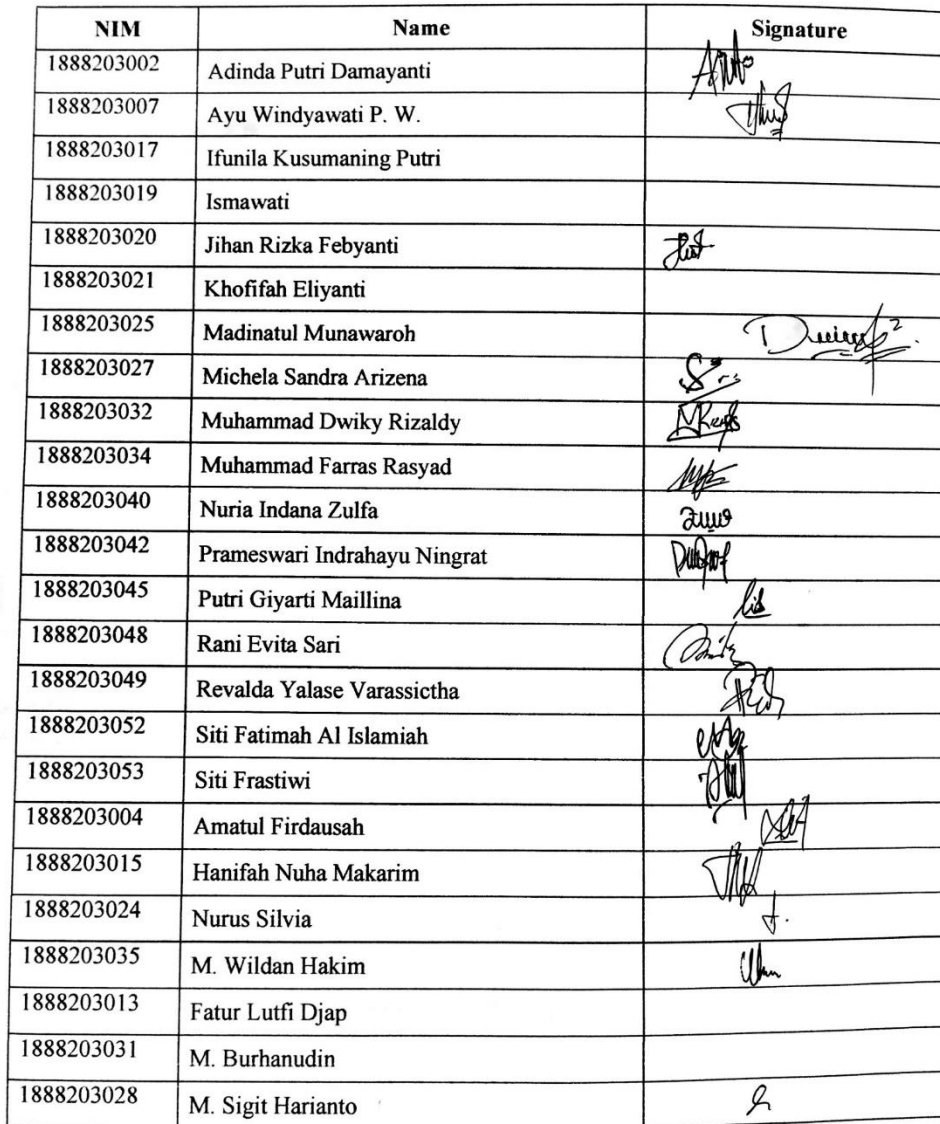 NIM Name Signature
1888203002 Adinda Putri Damayanti
1888203007 Ayu Windyawati P. W.
1888203017 Ifunila Kusumaning Putri
1888203019 Ismawati
1888203020 Jihan Rizka Febyanti
1888203021 Khofifah Eliyanti
1888203025 Madinatul Munawaroh
1888203027 Michela Sandra Arizena
1888203032 Muhammad Dwiky Rizaldy
1888203034 Muhammad Farras Rasyad
1888203040 Nuria Indana Zulfa
1888203042 Prameswari Indrahayu Ningrat
1888203045 Putri Giyarti Maillina
1888203048 Rani Evita Sari
1888203049 Revalda Yalase Varassictha
1888203052 Siti Fatimah Al Islamiah
1888203053 Siti Frastiwi
1888203004 Amatul Firdausah
1888203015 Hanifah Nuha Makarim
1888203024 Nurus Silvia
1888203035 M. Wildan Hakim
1888203013 Fatur Lutfi Djap
1888203031 M. Burhanudin
1888203028 M. Sigit Harianto